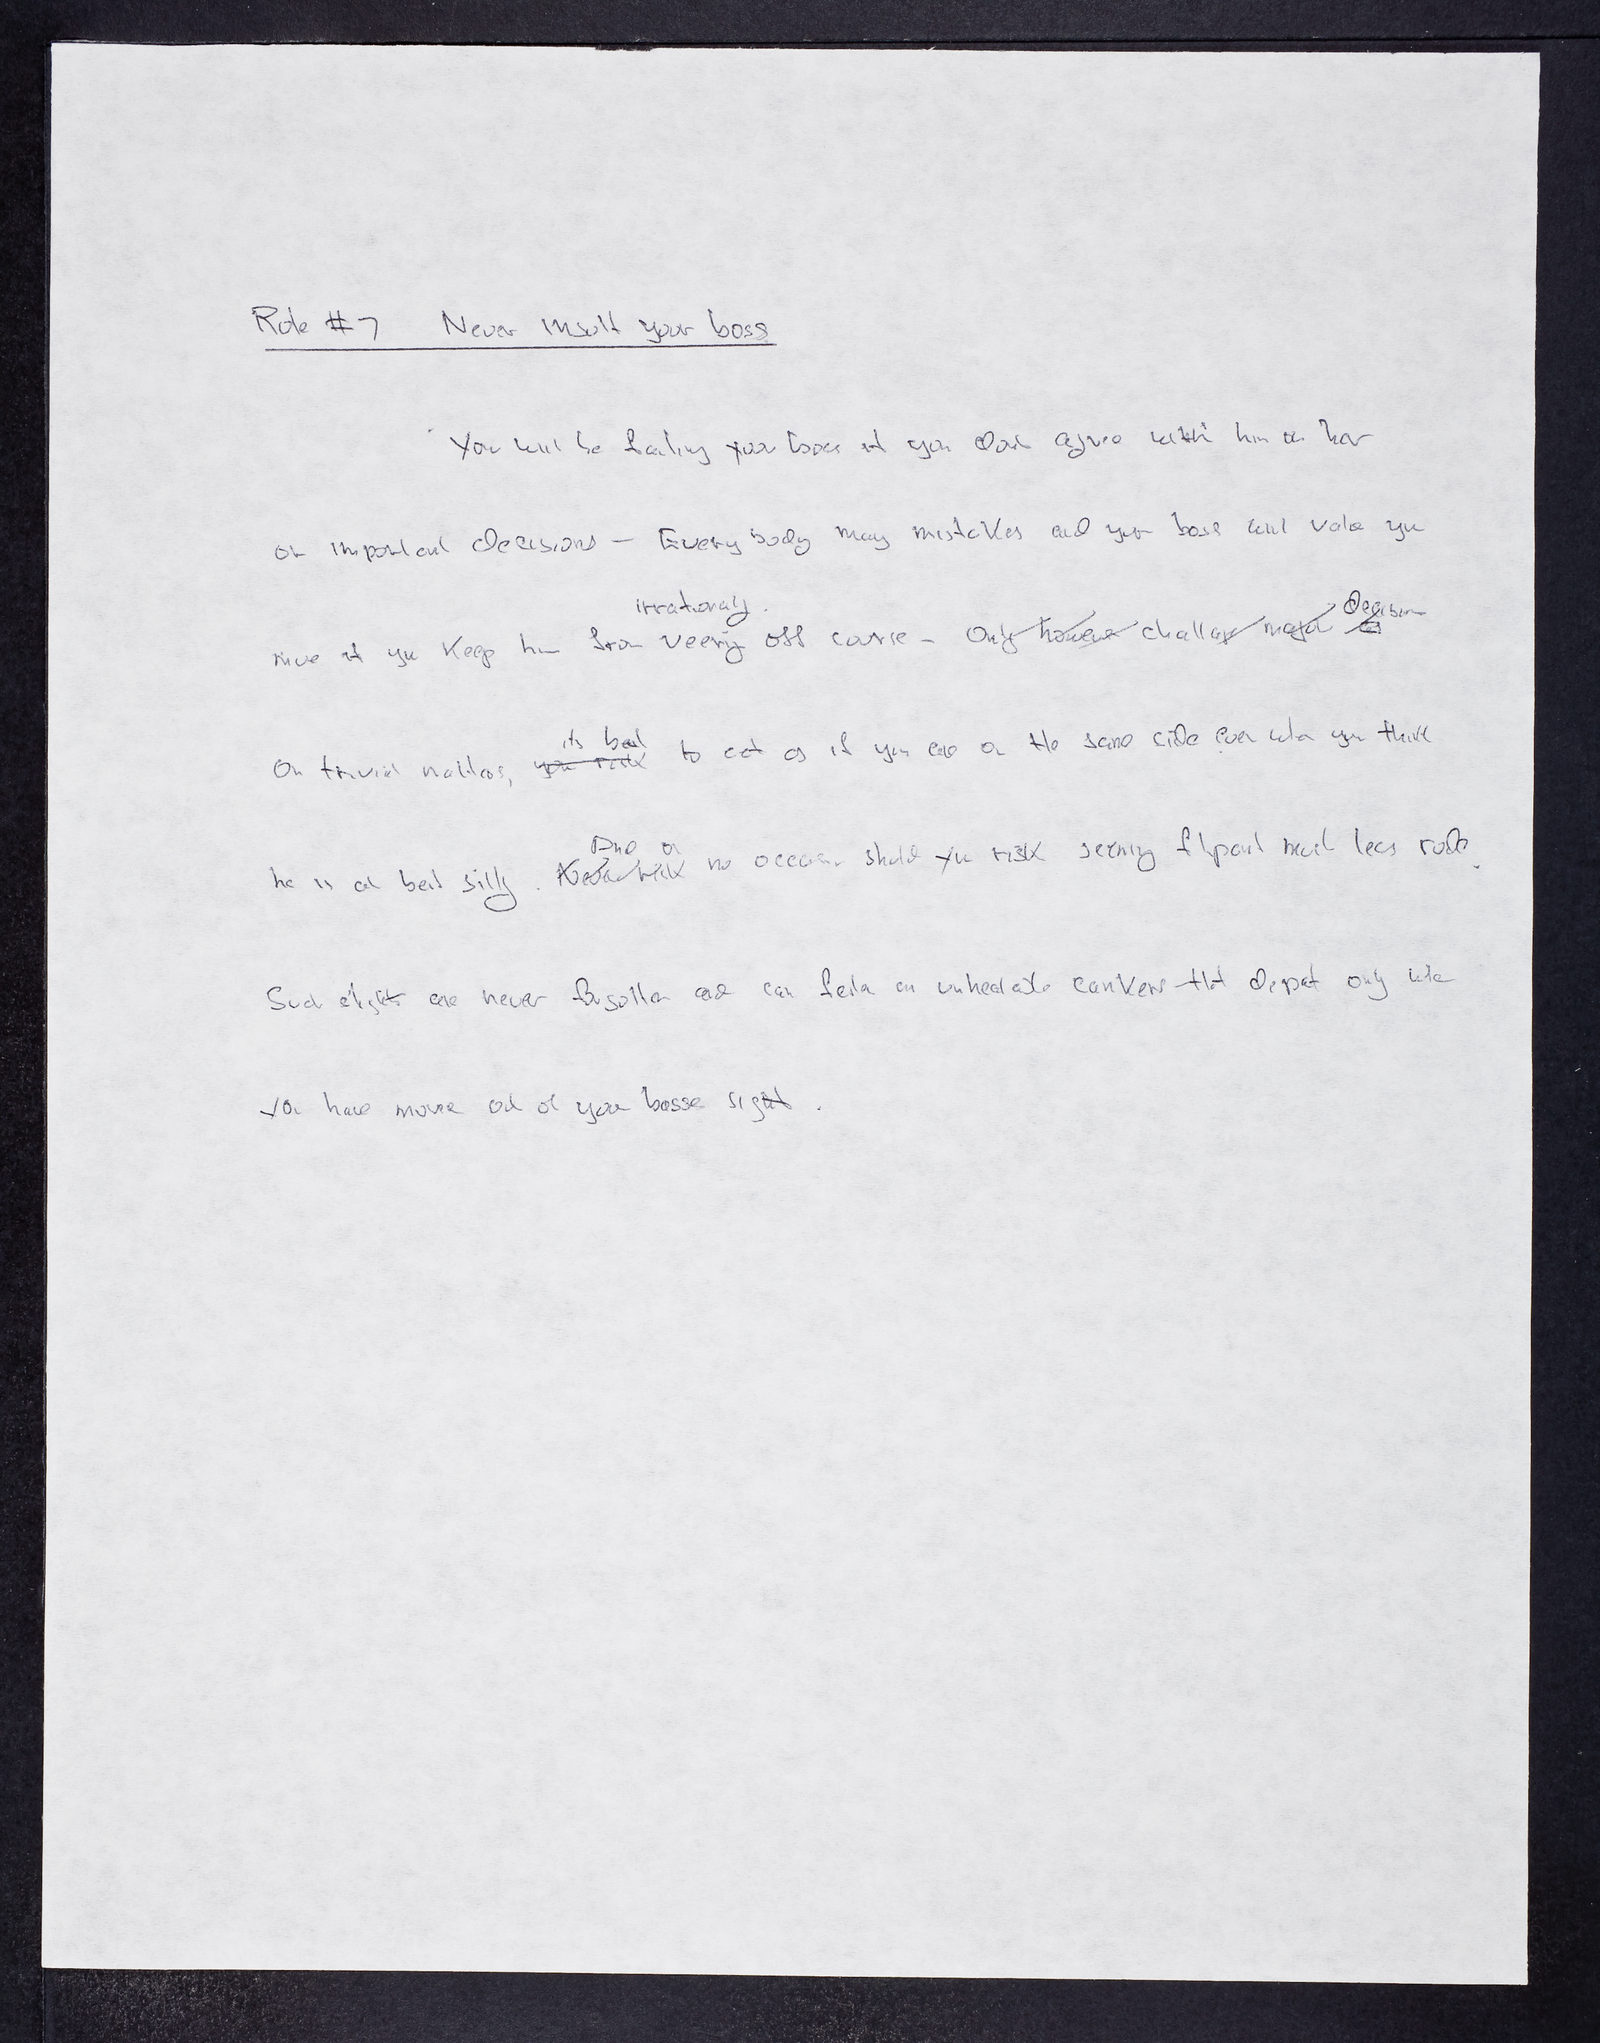 Rule #7 Never insult your boss
You will be your boss if you don't agree with him or her
on important decisions — Everybody may mistakes and your boss will value you
irrationaly.
more if you keep him from veering off course – Only however challenge major decision
its best
On trivial matters, you risk to act as if you are on the same side even when you think
And on
he is at best silly. Never risk no occasion should you risk seeming flipant much less rude.
Such slights are never forgotten and can fester on unhealable cankers that depart only when
you have moved out of your bosses sight.